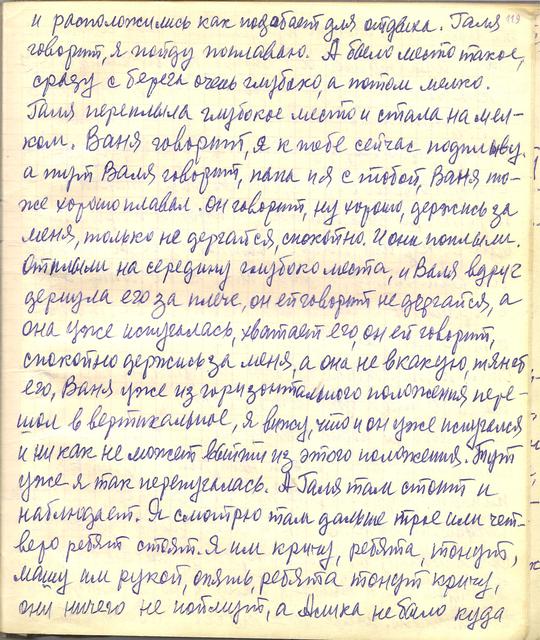 и расположились как подобает для отдыха. Галя 119
говорит, я пойду поплаваю. А было место такое,
сразу с берега очень глубоко, а потом мелко.
Галя переплыла глубокое место и стала на мел-
ком. Ваня говорит, я к тебе сейчас подплыву.
а тут Валя говорит, папа и я с тобой, Ваня то-
же хорошо плавал. Он говорит, ну хорошо, держись за
меня, только не дергайся, спокойно. И они поплыли.
Отплыли на середину глубокоместа, и Валя вдруг
дернула его за плече, он ей говорит не дергайся, а
она уже испугалась, хватает его, он ей говорит,
спокойно держись за меня, а она не в какую, тянет
его, Ваня уже из горизонтального положения пере-
шол в вертикальное, я вижу, что и он уже испугался
и ни как не может выйти из этого положения. Тут
уже я так перепугалась. А Галя там стоит и
наблюдает. Я смотрю там дальше трое или чет-
веро ребят стоят. Я им кричу, ребята, тонут,
машу им рукой, опять, ребята тонут кричу,
они ничего не поймут, а Алика не было куда